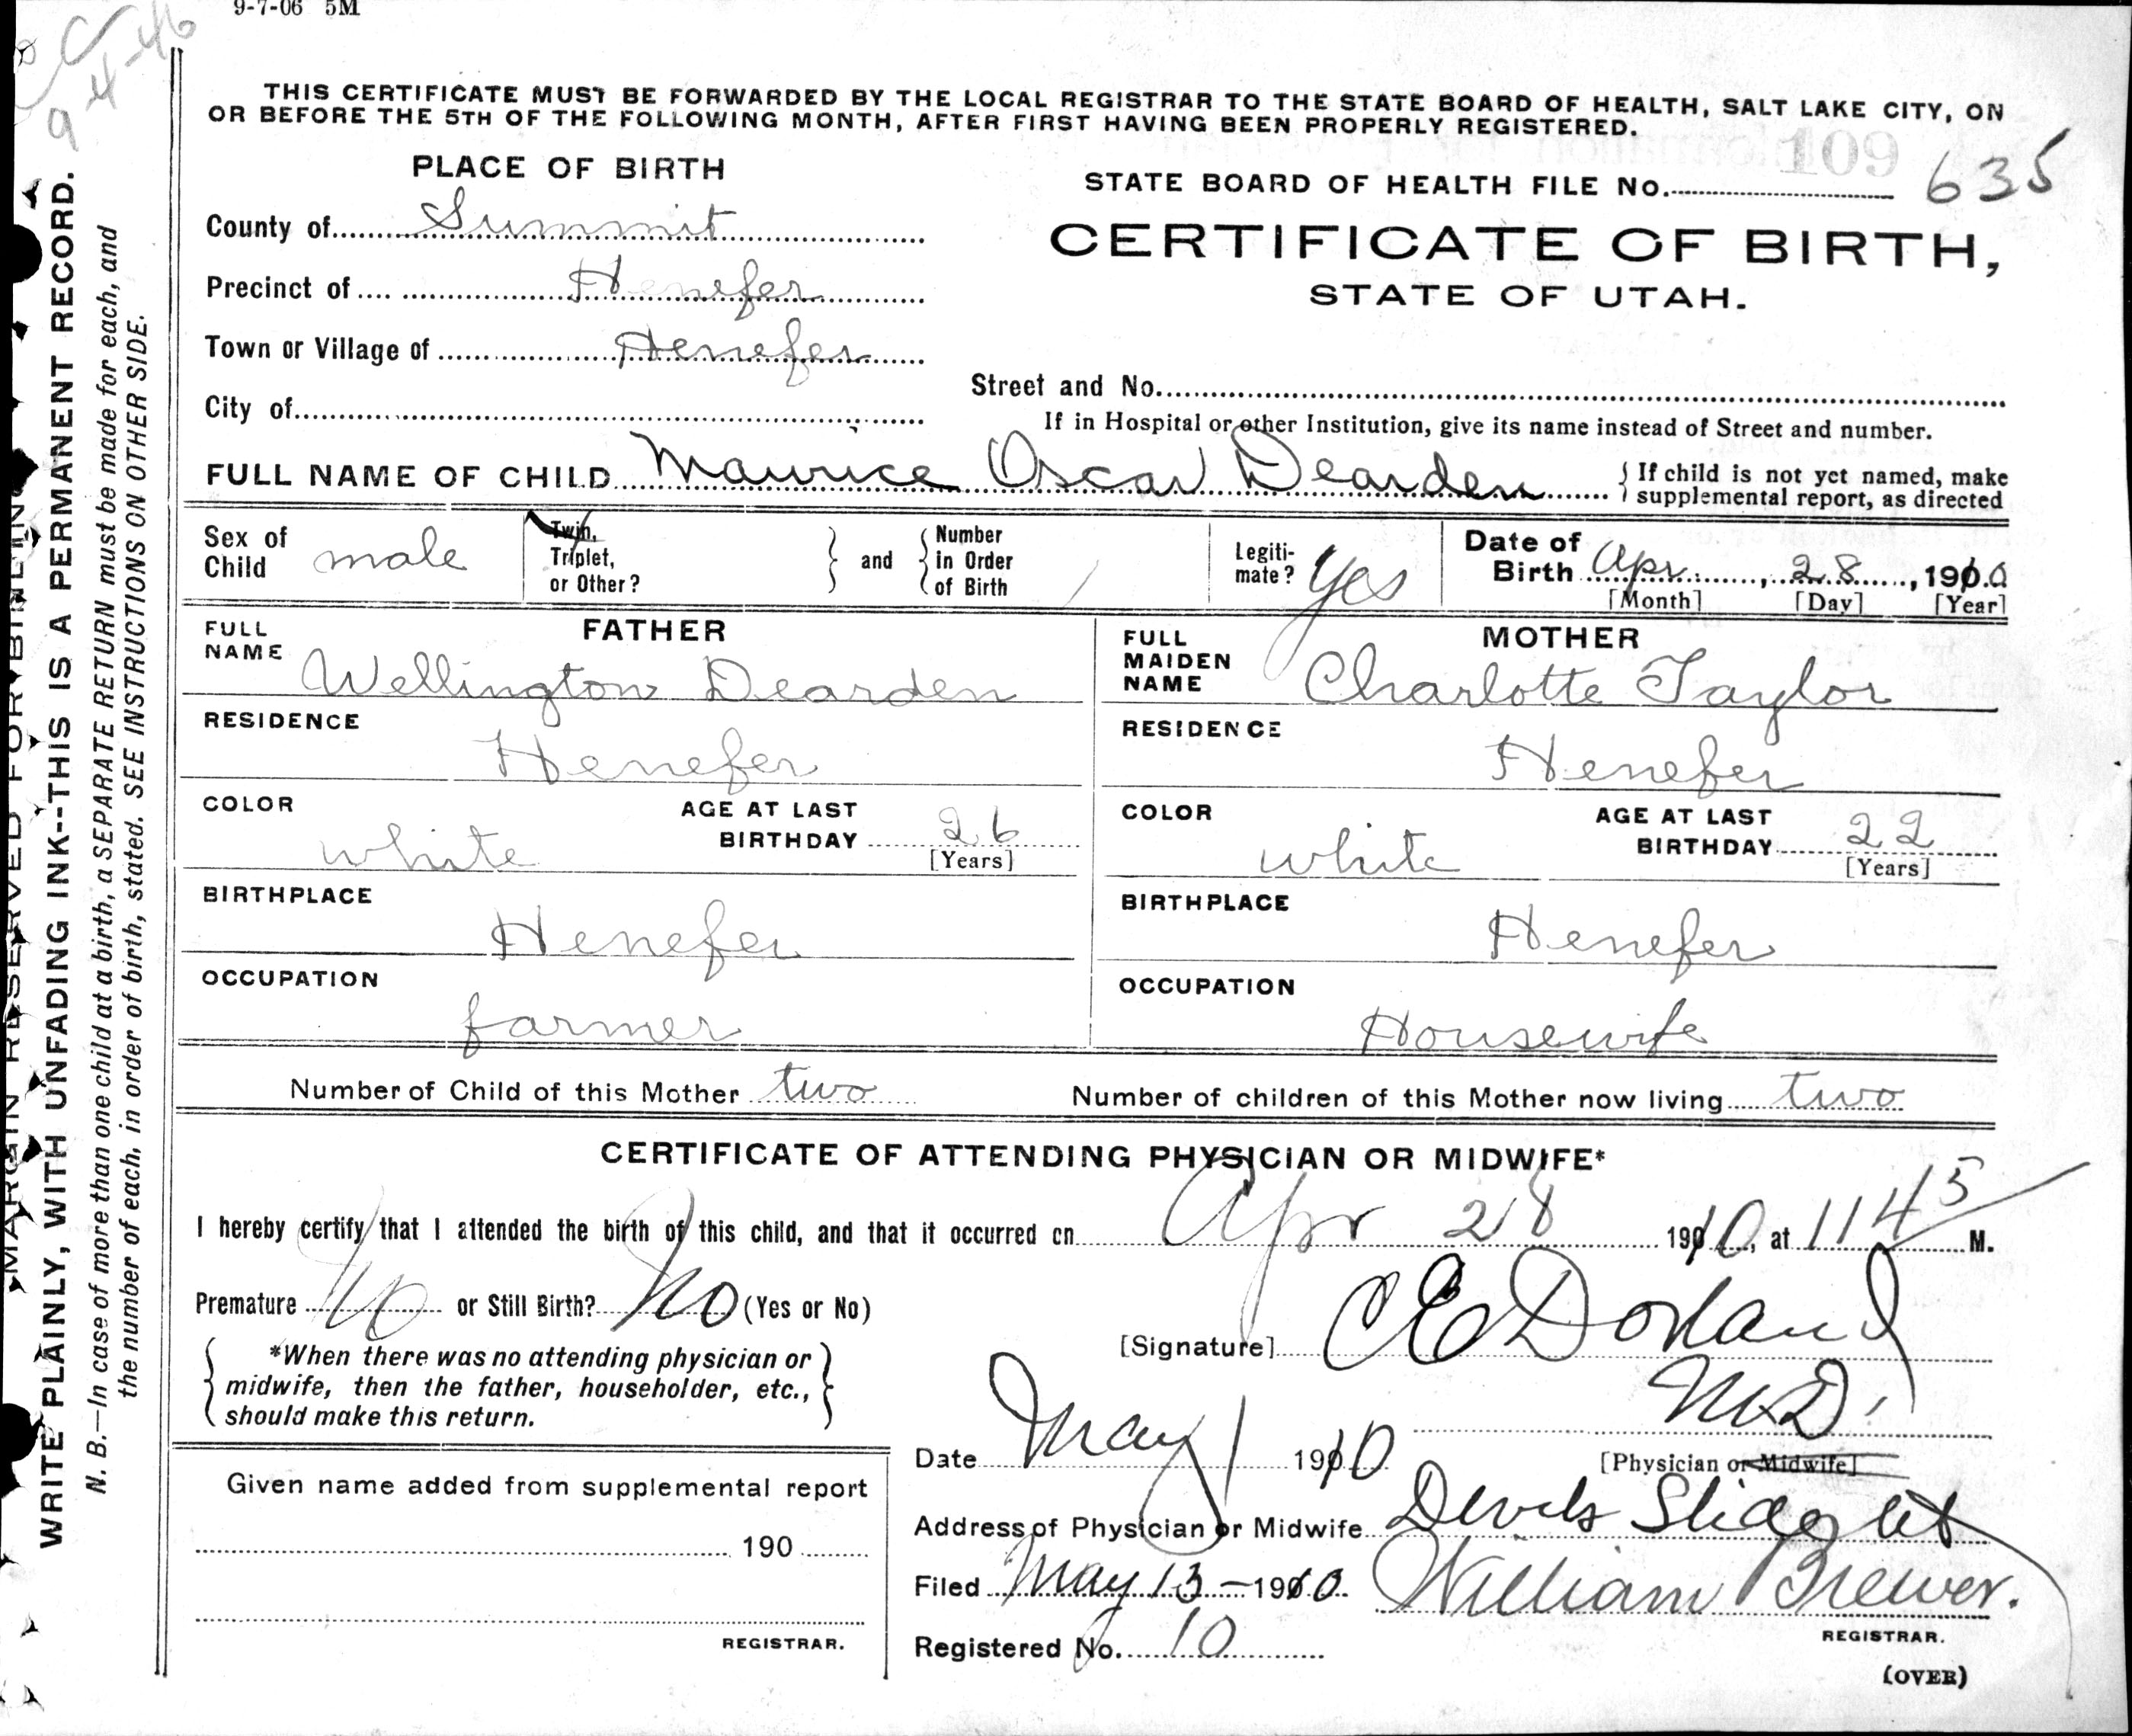 9-7-06 5M
C
9-4-46
THIS CERTIFICATE MUST BE FORWARDED BY THE LOCAL REGISTRAR TO THE STATE BOARD OF HEALTH, SALT LAKE CITY, ON
OR BEFORE THE 5TH OF THE FOLLOWING MONTH, AFTER FIRST HAVING BEEN PROPERLY REGISTERED.
109
PLACE OF BIRTH
STATE BOARD OF HEALTH FILE NO. 635
County of Summit
CERTIFICATE OF BIRTH,
STATE OF UTAH.
Precinct of Henefer
Town or Village of Henefer
City of
Street and No.
If in Hospital or other Institution, give its name instead of Street and number.
FULL NAME OF CHILD Maurice Oscar Dearden { If child is not yet named, make
supplemental report, as directed
Sex of
Child male
Twin,
Triplet,
or Other?
} and {
Number
in Order
of Birth
Legiti-
mate? Yes
Date of
Birth Apr. 28, 1910
[Month] [Day] [Year]
FATHER
FULL
NAME
Wellington Dearden
RESIDENCE
Henefer
COLOR
white
AGE AT LAST
BIRTHDAY 26
[Years]
BIRTHPLACE
Henefer
OCCUPATION
farmer
MOTHER
FULL
MAIDEN
NAME
Charlotte Taylor
RESIDENCE
Henefer
COLOR
white
AGE AT LAST
BIRTHDAY 22
[Years]
BIRTHPLACE
Henefer
OCCUPATION
Housewife
Number of Child of this Mother two
Number of children of this Mother now living two
CERTIFICATE OF ATTENDING PHYSICIAN OR MIDWIFE*
I hereby certify that I attended the birth of this child, and that it occurred on Apr 28 1910, at 1145 M.
Premature No or Still Birth? No (Yes or No)
*When there was no attending physician or
midwife, then the father, householder, etc.,
should make this return.
[Signature] C E Dorland
M.D.
[Physician or Midwife]
Date May 1 1910
Address of Physician or Midwife Devils Slide Ut
Filed May 13 - 1910. William Brewer.
REGISTRAR.
Registered No. 10
(OVER)
Given name added from supplemental report
190
REGISTRAR.
MARGIN RESERVED FOR BINDING
WRITE PLAINLY, WITH UNFADING INK--THIS IS A PERMANENT RECORD.
N. B.—In case of more than one child at a birth, a SEPARATE RETURN must be made for each, and
the number of each, in order of birth, stated. SEE INSTRUCTIONS ON OTHER SIDE.